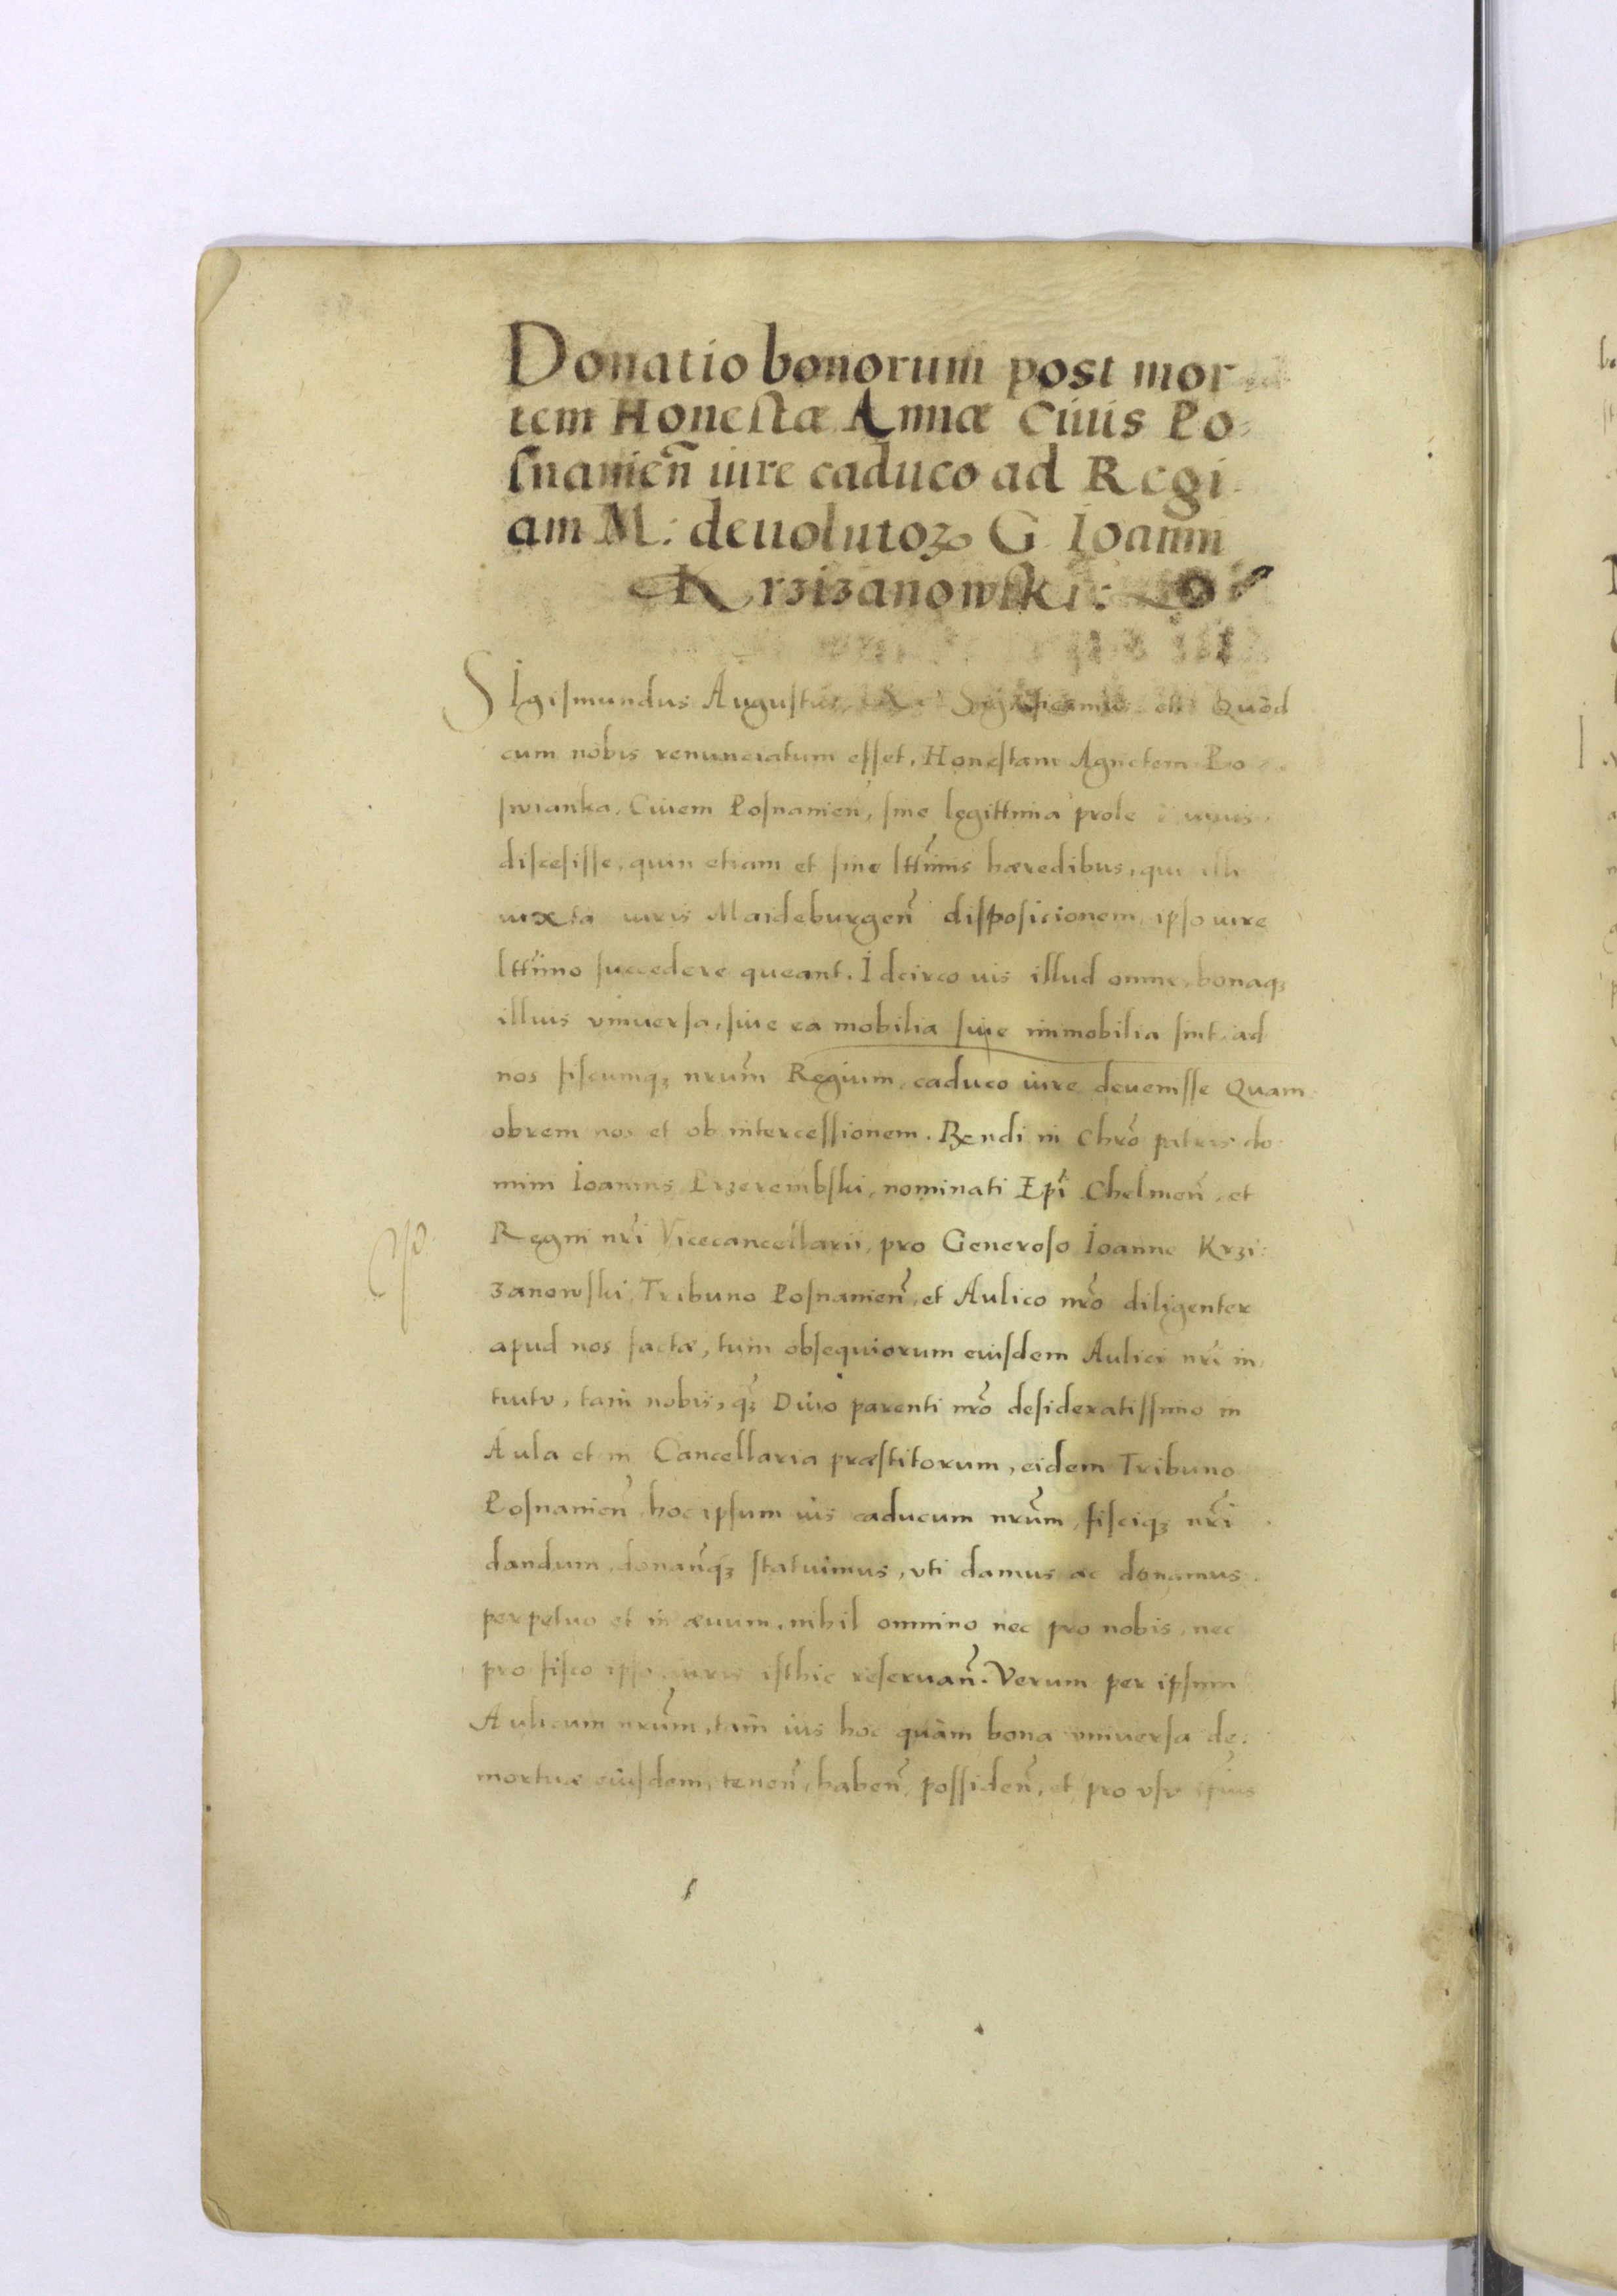 Donatio bonorum post mor
tem Honestæ Annæ Ciuis Po=
snanien̄ iure caduco ad Regi
am M: deuolutoꝝ G Ioanni
Krzizanowski:
SIgismundus Augustus Significamus Quòd
cum nobis renunciatum esset, Honestam Agnetem Po
swianka, Ciuem Posnanien̄, sine legittima prole
discesisse, quin etiam et sine lttimis hæredibus, qui illi
iuxta iuris Maideburgen̄ disposicionem ipso iure
lttimo succedere queant. Idcirco ius illud omne, bonaqꝫ
illius vniuersa, siue ea mobilia siue immobilia sint, ad
nos fiscumqꝫ nrūm Regium, caduco iure deuenisse Quam
obrem nos et ob intercessionem. Rendi in Chrō patris do
mini Ioannis Przerembski, nominati Epī Chelmen̄, et
Regni nrī Vicecancellarii, pro Generoso Ioanne Krzi:
zanowski, Tribuno Posnanien̄, et Aulico nrō diligenter
apud nos factæ, tum obsequiorum eiusdem Aulici nrī in
tuitu, tam nobis, qꝫ Diuo parenti nrō desideratissimo in
Aula et in Cancellaria præstitorum, eidem Tribuno
Posnanien̄ hoc ipsum ius caducum nrūm, fisciqꝫ nrī
dandum, donan̄qꝫ statuimus, vti damus ac donamus
perpetuo et in æuum, nihil omnino nec pro nobis, nec
pro fisco ipso iuris isthic reseruan̄. Verum per ipsum
Aulicum nrūm, tam ius hoc quàm bona vniuersa de:
mortuæ eiusdem, tenen̄, haben̄, possiden̄, et pro vsu ipsius